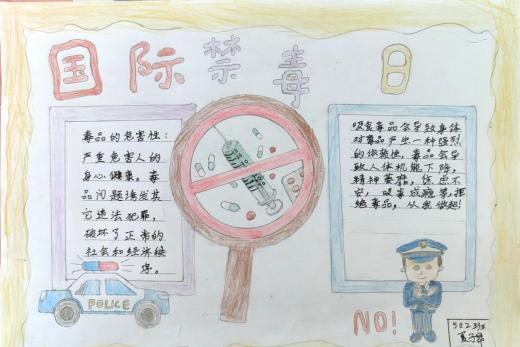 国际禁毒日
毒品的危害性:
严重危害人的
身心健康,毒
品问题诱发其
它违法犯罪,
破坏了正常的
社会和经济秩
序。
吸食毒品会导致身体
对毒品产生一种强烈
的依赖性,毒品会导
致人体机能下降,
精神萎靡,焦虑不
安,吸毒成瘾禁,拒
绝毒品,从我做起!
POLICE
NO!
502班